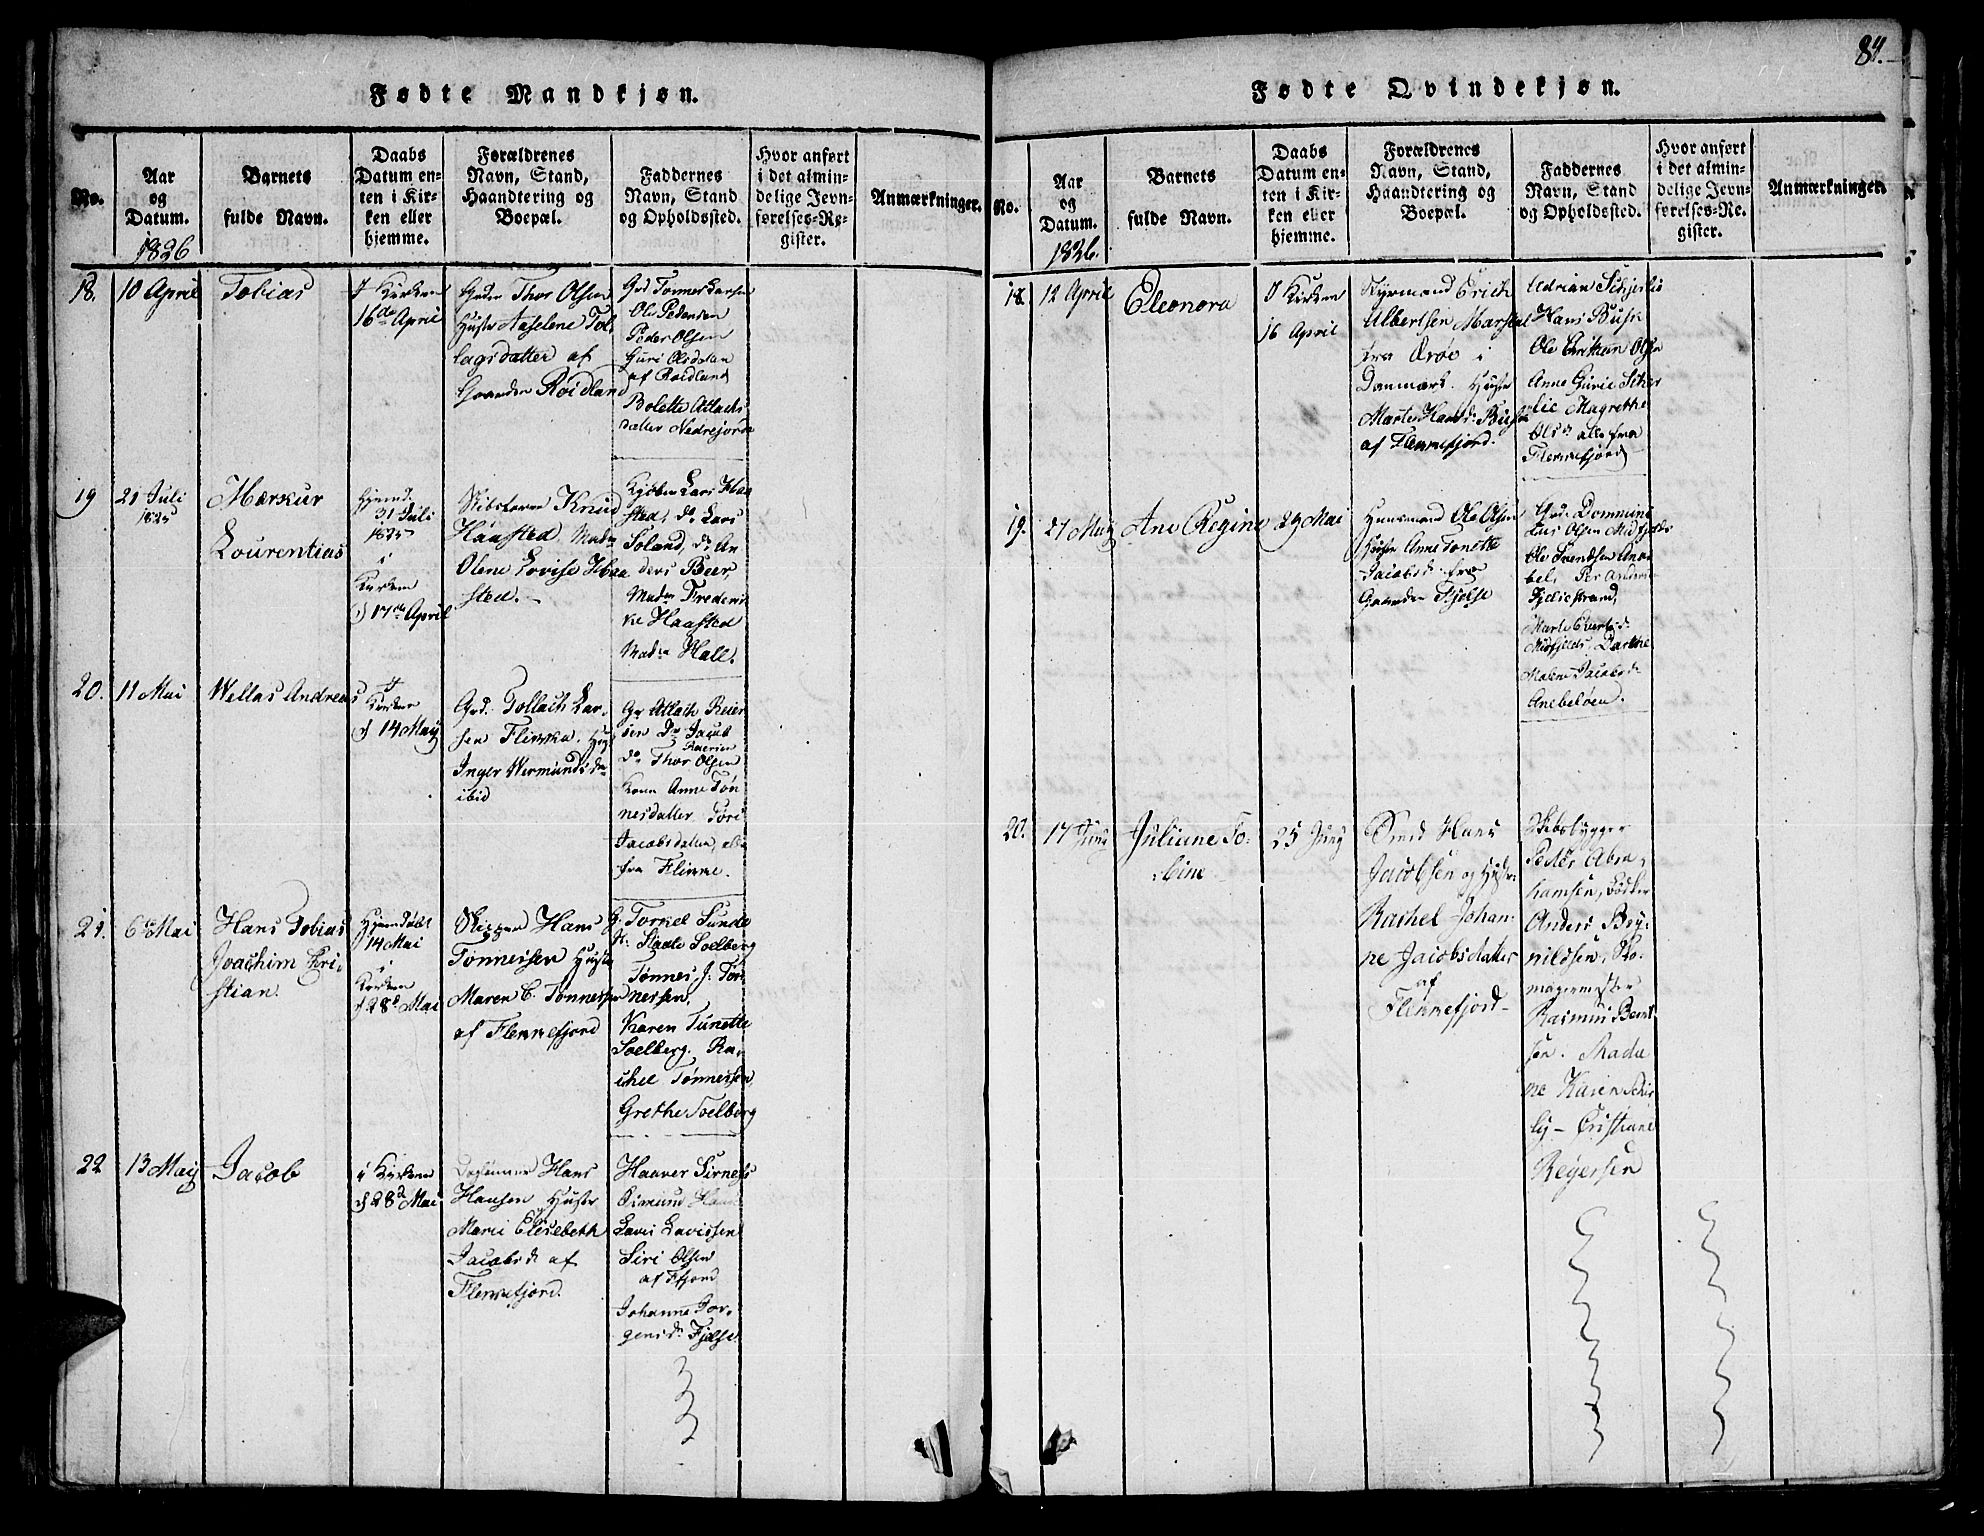 84.
Fødte Mandkjøn.
No.
Aar
og
Datum.
1826
Barnets
fulde Navn.
Daabs
Datum en-
ten i Kir-
ken eller
hjemme.
Forældrenes
Navn, Stand,
Haandtering og
Boepæl.
Faddernes
Navn, Stand
og Opholdssted.
Hvor anført
i det almin-
delige Jevn-
førelses-Re-
gister.
Anmærkninger.
18.
10 April
Tobias
I Kirken
16de April
Thor Olsen
Hustr Aaselene Tol-
lagsdatter af
Gaarden Røidland
Grd Tønnes Larsen
Ole Pedersen
Peder Olsen
Guri Olsdatter
af Roidland
Bolette Atlachs
datter Nedrejorde
19
21 Juli
1825
Mærkur
Lourentius
Hjemd.
31 Juli
1825
i
Kirken
d 17de April
Knud
Haasted, Madm
Olene Lovise Haa
sted.
Kjøbm Lars Haa
sted, do Lars
Soland, do An
ders Beer,
Madm Frederik
ke Haasted
Madm Hall.
20.
11 Mai
Wellas Andreas
I
Kirken
d 14 May
Grd. Tollach Lar-
sen Flikka. Hust
Inger Wermundsdr
ibid
Gr Atlach Reier
sen Do Jacob
Reiersen
do Thor Olsen
Kone Anne Tøn
nesdatter Tori
Jacobsdatter, alle
fra Flikke.
21.
6te Mai
Hans Tobias
Joachim Kri-
stian.
Hjemdøbt
14 Mai
i
Kirken
d. 28d Mai
Skipper Hans
Tønnessen Hustr
Maren C. Tønnessen
af Flekkefjord
G. Torkel Sunde
H: Staale Soelberg
Tønnes J. Tøn-
nessen.
Karen Tunette
Soelberg. Ra-
chel Tønnessen,
Grethe Soelberg
22
13 May
Jacob
i Kirken
d 28d Mai
Hans
Hansen Hustr
Marie Elesebeth
Jacobsdr af
Flekkefjord.
Haaver Sirnæs
Osmund
Laves Lavessen
Siri Olsen
af Ffjord
Johanne Jør-
gensdr Fjelse
Fødte Qvindekjøn.
No.
Aar
og
Datum.
1826.
Barnets
fulde Navn.
Daabs
Datum en-
ten i Kir-
ken eller
hjemme.
Forældrenes
Navn, Stand,
Haandtering og
Boepæl.
Faddernes
Navn, Stand
og Opholdssted.
Hvor anført
i det almin-
delige Jevn-
førelses-Re-
gister.
Anmærkninger.
18.
12 April
Eleonora
I Kirken
16 April
Styrmand Erich
Albertsen Marstal
fra Ærøe i
Danmark. Hustr
Marte Hansdr Busk
af Flekkefjord.
Adrian Schjerlie
Hans Busk
Ole Olsen
Anne Gurie Scher
lie Magrethe
Olsdr alle fra
Flekkefjord
19.
27 May
Ane Regine
29 Mai
Huusmand Ole Olsen
Hustr Anne Tonette
Jacobsdr fra
Gaarden Fjelse
Grd. Dommund
Lars Olsen Midfjelds
Ole Svendsen Ane-
bel, Per Anders
Fjelsestrand,
Marte
Midfjelds, Darthe
Malene Jacobsdr
Anebeløen.
20.
17 Juny
Juliane To-
bine
25 Juny
Smed Hans
Jacobsen og Hustr
Rachel Johan-
ne Jacobsdatter
af
Flekkefjord
Skibsbygger
Peder Abra-
hamsen, Bødker
Anders Bry-
nildsen, Sko-
magermester
Rasmus Bernt
sen. Mada
me Karen Schir
ly - Cristiane
Reyersen